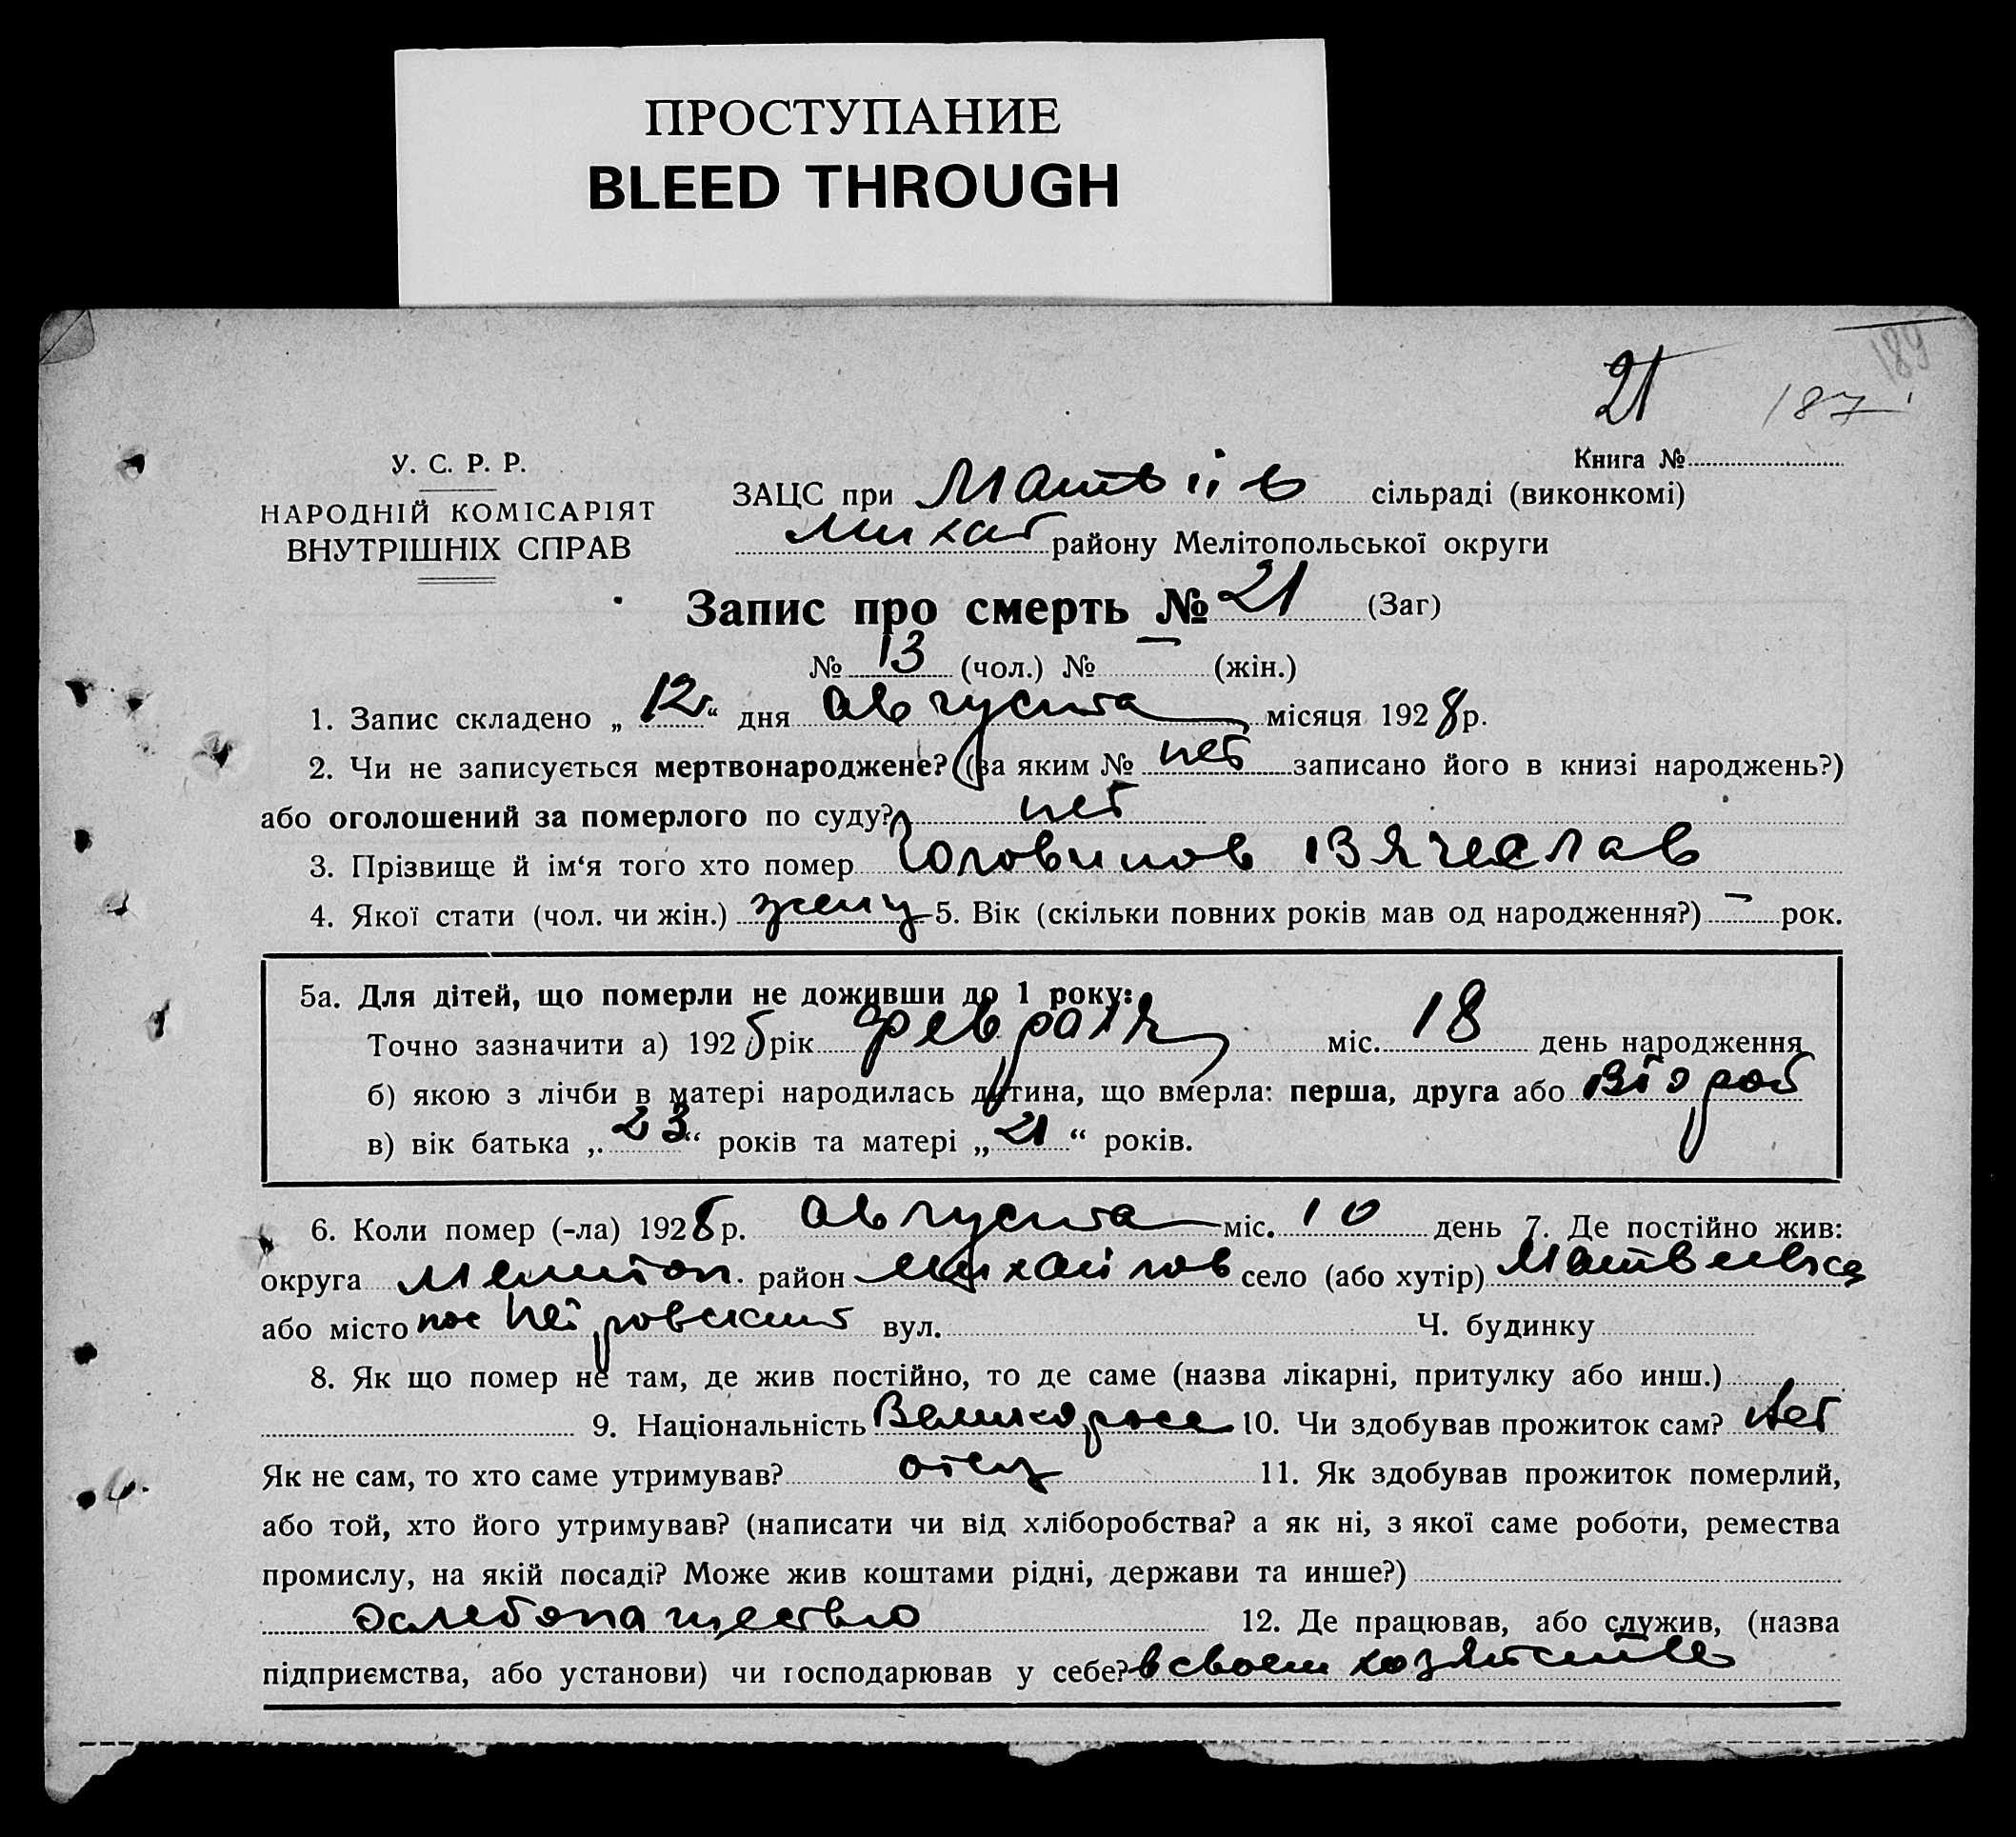 ПРОСТУПАНИЕ
BLEED THROUGH
189
21 187
Книга №
У. С. Р. Р.
НАРОДНІЙ КОМІСАРІЯТ
ВНУТРІШНІХ СПРАВ
ЗАЦС при Матвіїв сільраді (виконкомі)
Михай району Мелітопольської округи
Запис про смерть № 21 (Заг)
№ 13 (чол.) № — (жін.)
1. Запис складено „ 12 “ дня августа місяця 1928 р.
2. Чи не записується мертвонароджене? (за яким № нет записано його в книзі народжень?)
або оголошений за померлого по суду? нет
3. Прізвище й ім‘я того хто помер Головинов Вячеслав
4. Якої стати (чол. чи жін.) 5. Вік (скільки повних років мав од народження?) — рок.
5а. Для дітей, що померли не доживши до 1 року:
Точно зазначити а) 192 рік февраля міс. 18 день народження
б) якою з лічби в матері народилась дитина, що вмерла: перша, друга або второй
в) вік батька „ 23 “ років та матері „ 21 “ років.
6. Коли помер (-ла) 1928 р. августа міс. 10 день 7. Де постійно жив:
округа Мелитоп. район Михайлов село (або хутір) Матвеевка
або місто пос Петровский вул. Ч. будинку
8. Як що помер не там, де жив постійно, то де саме (назва лікарні, притулку або инш.)
9. Національність Великоросс 10. Чи здобував прожиток сам? Нет
Як не сам, то хто саме утримував? отец 11. Як здобував прожиток померлий,
або той, хто його утримував? (написати чи від хліборобства? а як ні, з якої саме роботи, ремества
промислу, на якій посаді? Може жив коштами рідні, держави та инше?)
12. Де працював, або служив, (назва
підприємства, або установи) чи господарював у себе? в своем хозяйстве